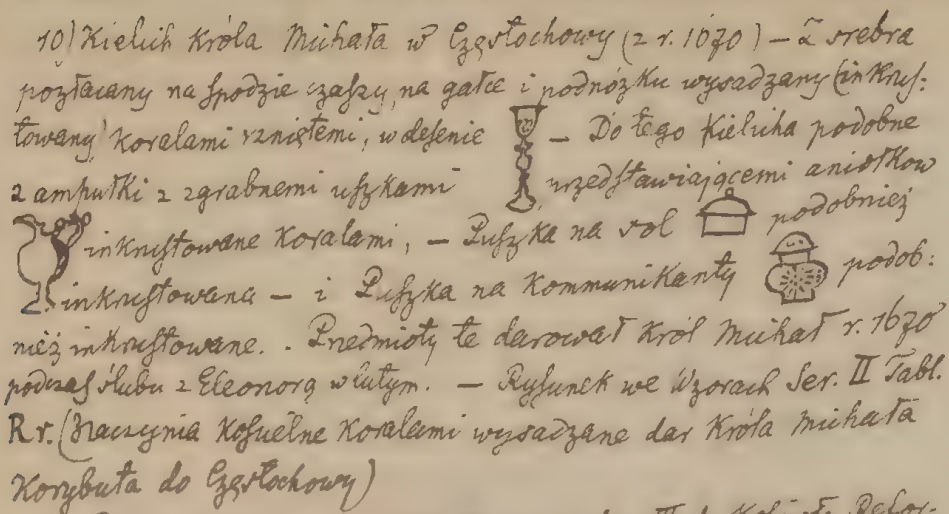 10) Kielich Króla Michała w Częstochowy (z r. 1670) – ze srebra
pozłacany na spodzie czaszy, na gałce i podnóżku wysadzany (inkrus-
towany) Koralami rzniętemi, w desenie – Do tego Kielicha podobne
2 ampułki z zgrabnemi uszkami przedstawiającemi aniołkow
inkrustowane Koralami, – Puszka na sol podobnież
inkrustowana – i Puszka na Kommunikanty podob:
nież inkrustowane. . Przedmioty te darował Król Michał r. 1670
podczas ślubu z Eleonorą w lutym. – Rysunek we Wzorach Ser. II Tabl.
R r. (Naczynia Kościelne Koralami wysadzane dar Króla Michała
Korybuta do Częstochowy)